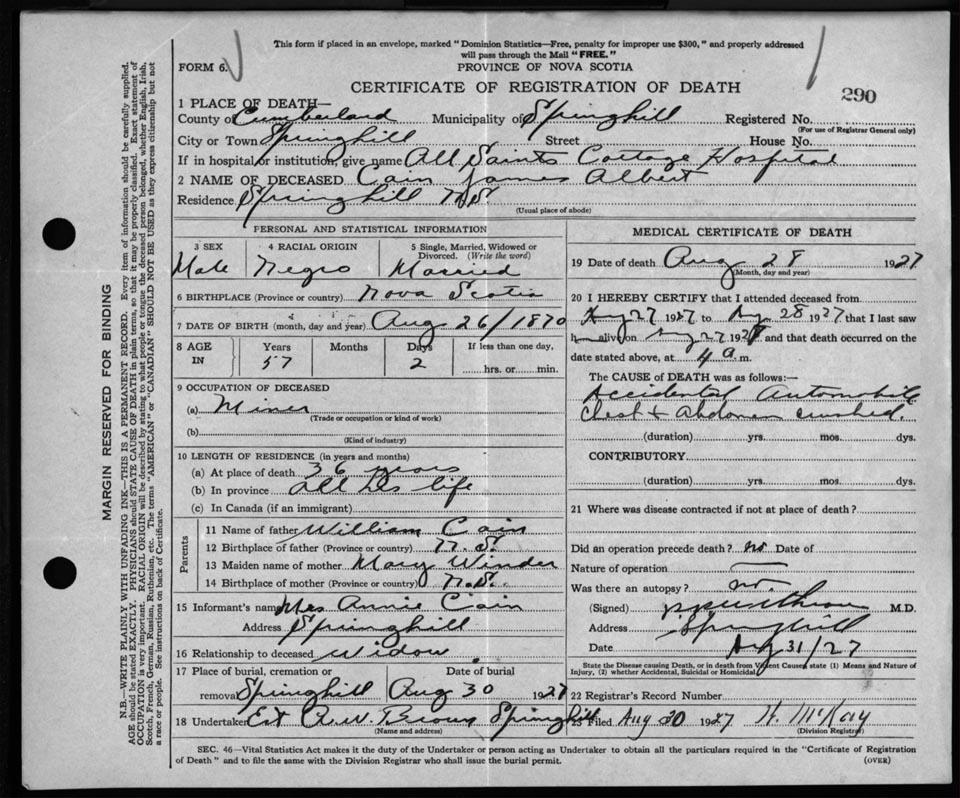 This form if placed in an envelope, marked "Dominion Statistics—Free, penalty for improper use $300," and properly addressed
will pass through the Mail "FREE."
FORM 6.
PROVINCE OF NOVA SCOTIA
CERTIFICATE OF REGISTRATION OF DEATH
290
1 PLACE OF DEATH—
County of Cumberland Municipality of Springhill Registered No.
(For use of Registrar General only)
City or Town Springhill Street House No.
If in hospital or institution, give name All Saints Cottage Hospital
2 NAME OF DECEASED Cain James Albert
Residence Springhill N.S.
(Usual place of abode)
PERSONAL AND STATISTICAL INFORMATION
3 SEX 4 RACIAL ORIGIN 5 Single, Married, Widowed or Divorced. (Write the word)
Male Negro Married
6 BIRTHPLACE (Province or country) Nova Scotia
7 DATE OF BIRTH (month, day and year) Aug 26/1870
8 AGE IN Years Months Days If less than one day,
57 2 hrs. or min.
9 OCCUPATION OF DECEASED
(a) Miner
(Trade or occupation or kind of work)
(b)
(Kind of industry)
10 LENGTH OF RESIDENCE (in years and months)
(a) At place of death 36 years
(b) In province all his life
(c) In Canada (if an immigrant)
Parents
11 Name of father William Cain
12 Birthplace of father (Province or country) N.S.
13 Maiden name of mother Mary Winder
14 Birthplace of mother (Province or country) N.S.
15 Informant's name Mrs Annie Cain
Address Springhill
16 Relationship to deceased Widow
17 Place of burial, cremation or removal Date of burial
Springhill Aug 30 1927
18 Undertaker Est A.W. Brown Springhill
(Name and address)
MEDICAL CERTIFICATE OF DEATH
19 Date of death Aug 28 1927
(Month, day and year)
20 I HEREBY CERTIFY that I attended deceased from
Aug 27 1927 to Aug 28 1927 that I last saw
h alive on Aug 27 1927 and that death occurred on the
date stated above, at 4 a.m.
The CAUSE of DEATH was as follows:—
Accidental Automobile
Chest & Abdomen crushed.
(duration) yrs. mos. dys.
CONTRIBUTORY
(duration) yrs. mos. dys.
21 Where was disease contracted if not at place of death?
Did an operation precede death? no Date of
Nature of operation —
Was there an autopsy? no.
(Signed) M.D.
Address Springhill
Date Aug 31/27
State the Disease causing Death, or in death from Violent Causes, state (1) Means and Nature of
Injury, (2) whether Accidental, Suicidal or Homicidal.
22 Registrar's Record Number
23 Filed Aug 30 1927 H. McKay
(Division Registrar)
SEC. 46—Vital Statistics Act makes it the duty of the Undertaker or person acting as Undertaker to obtain all the particulars required in the "Certificate of Registration
of Death" and to file the same with the Division Registrar who shall issue the burial permit.
(OVER)
MARGIN RESERVED FOR BINDING
N.B.—WRITE PLAINLY WITH UNFADING INK—THIS IS A PERMANENT RECORD. Every item of information should be carefully supplied.
AGE should be stated EXACTLY. PHYSICIANS should STATE CAUSE OF DEATH in plain terms, so that it may be properly classified. Exact statement of
OCCUPATION is very important. RACIAL ORIGIN will be described by stating to what people or tongue the deceased person belonged, whether English, Irish,
Scotch, French, German, Russian, Ruthenian, etc. The terms "AMERICAN" or "CANADIAN" SHOULD NOT BE USED as they express citizenship but not
a race or people. See instructions on back of Certificate.